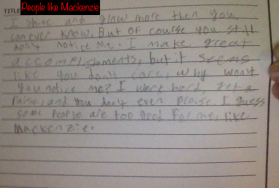 People like Mackenzie
TITLE
I shine and glow more then you
can ever know. But of course you still
don't notice me. I make great
accomplishments, but it seems
like you don't care. Why won't
you notice me? I work hard, get a
raise, and you don't even praise. I guess
some people are too good for me, like
Mackenzie.